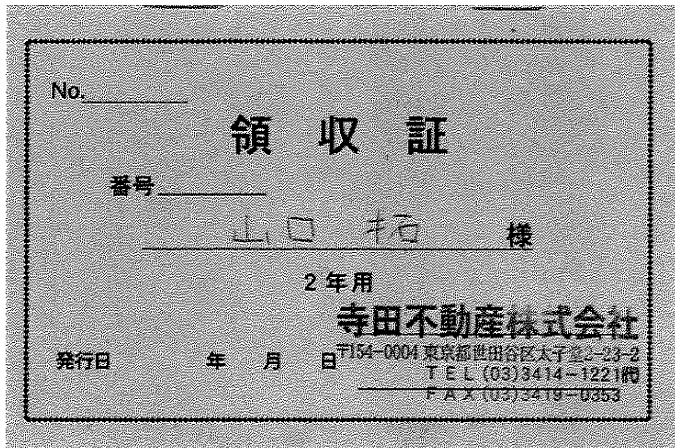 No.
領収証
番号
山口 拓 様
2年用
寺田不動産株式会社
〒154-0004 東京都世田谷区太子堂2-23-2
発行日 年 月 日
TEL (03)3414-1221㈹
FAX (03)3419-0353